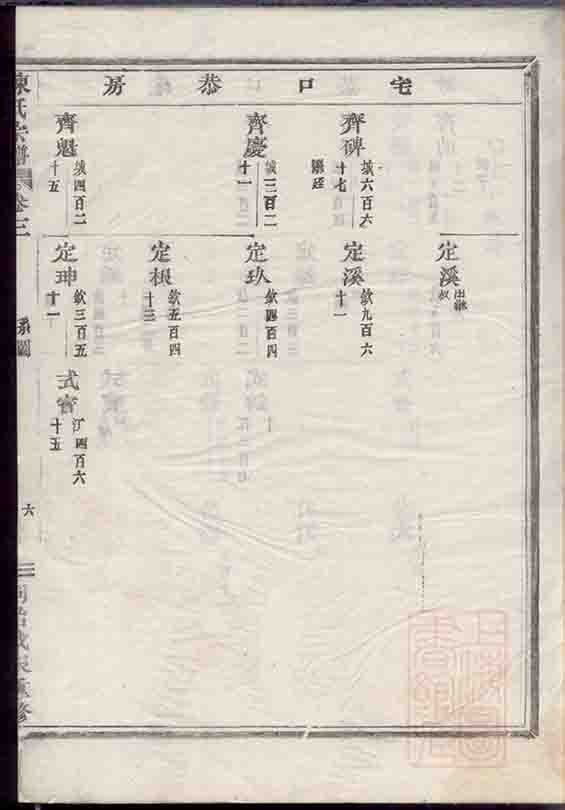 宅口恭房
齊碑
城六百六
十七
繼廷
齊慶
城三百二
十一
齊魁
城四百二
十五
定溪
出繼
叔
定溪
欽九百六
十一
定玖
欽四百四
十一
定根
欽五百四
十三
定珅
欽三百五
十一
式睿
江四百六
十五
陳氏宗譜
卷三
系圖
六